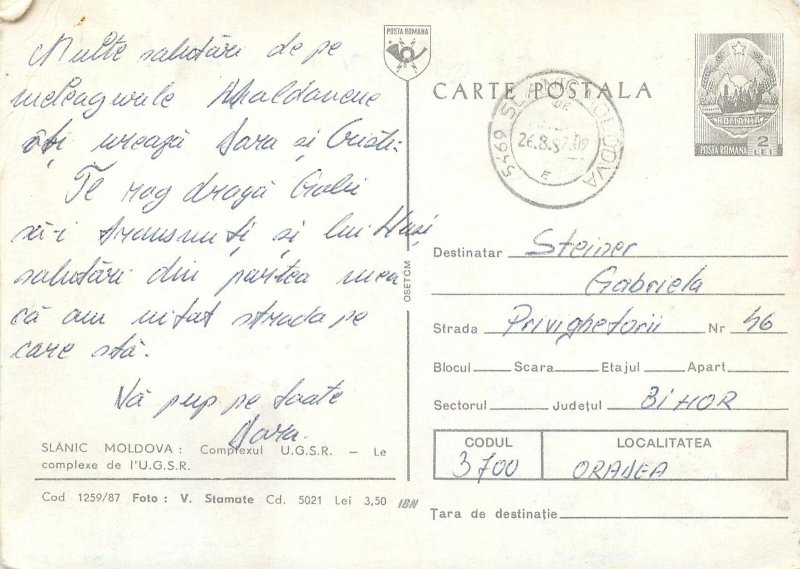 Multe salutări de pe
meleagurile Moldovene
vă urează Dora și Cristi.
Te rog dragă Gabi
să-i transmiți și lui Huși
salutări din partea mea
că am uitat strada pe
care stă.
Vă pup pe toate
Dora.
SLĂNIC MOLDOVA : Complexul U.G.S.R. — Le
complexe de l'U.G.S.R.
Cod 1259/87 Foto : V. Stamate Cd. 5021 Lei 3,50 IBN
OSETCM
POSTA ROMANA
CARTE POSTALA
5469 SLANIC MOLDOVA
26.8.87.09
ROMANIA
POSTA ROMANA 2 LEI
Destinatar Steiner
Gabriela
Strada Privighetorii Nr 46
Blocul Scara Etajul Apart
Sectorul Județul BIHOR
CODUL LOCALITATEA
3700 ORADEA
Țara de destinație